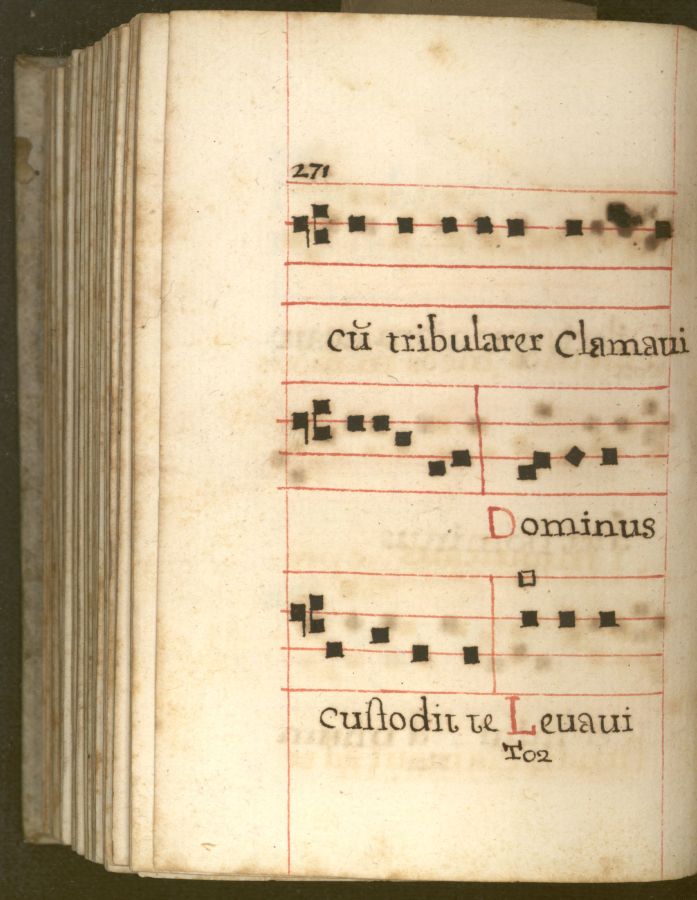 271
cŭ tribularer Clamaui
Dominus
custodit te Leuaui
To2